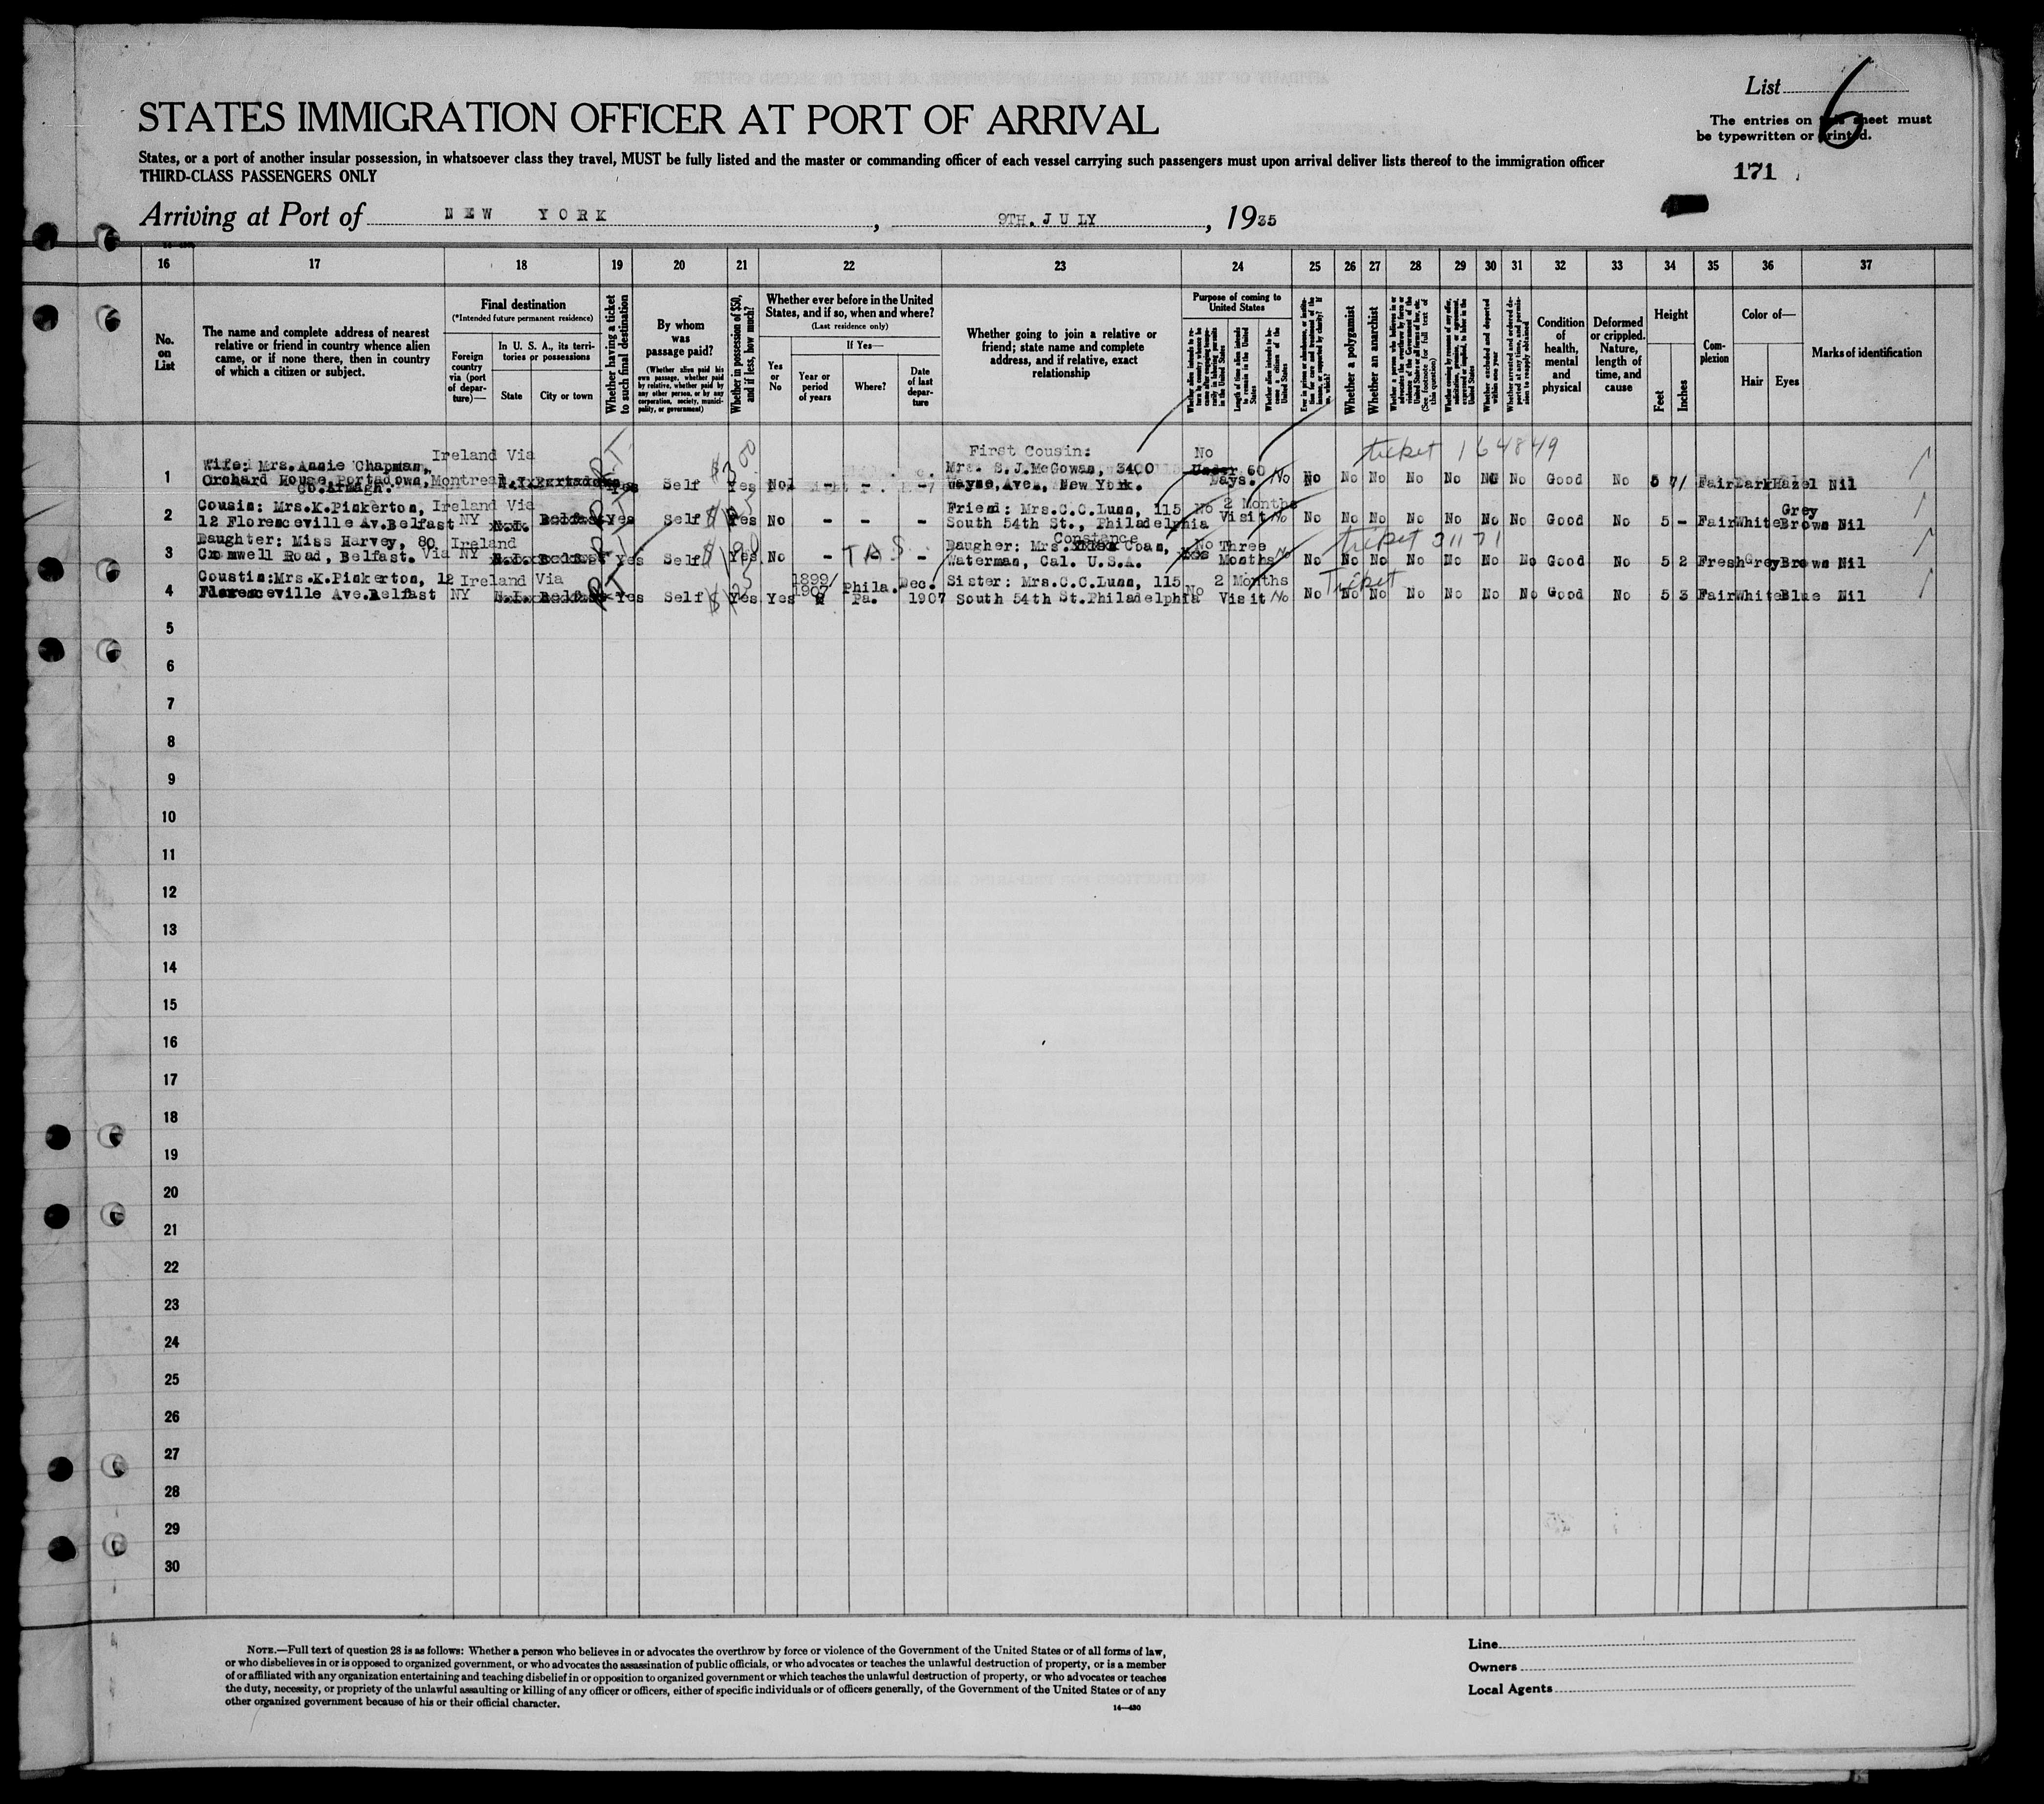 List 6
STATES IMMIGRATION OFFICER AT PORT OF ARRIVAL
The entries on this sheet must
be typewritten or printed.
States, or a port of another insular possession, in whatsoever class they travel, MUST be fully listed and the master or commanding officer of each vessel carrying such passengers must upon arrival deliver lists thereof to the immigration officer
THIRD-CLASS PASSENGERS ONLY
171
Arriving at Port of NEW YORK, 9TH. JULY, 1935
16 17 18 19 20 21 22 23 24 25 26 27 28 29 30 31 32 33 34 35 36 37
No. on List
The name and complete address of nearest relative or friend in country whence alien came, or if none there, then in country of which a citizen or subject.
Final destination
(*Intended future permanent residence)
Foreign country via (port of departure)—
In U. S. A., its territories or possessions
State
City or town
Whether having a ticket to such final destination
By whom was passage paid?
(Whether alien paid his own passage, whether paid by relative, whether paid by any other person, or by any corporation, society, municipality, or government)
Whether in possession of $50, and if less, how much?
Whether ever before in the United States, and if so, when and where?
(Last residence only)
Yes or No
If Yes—
Year or period of years
Where?
Date of last departure
Whether going to join a relative or friend; state name and complete address, and if relative, exact relationship
Purpose of coming to United States
Length of time alien intends to remain in the United States
Whether alien intends to become a citizen of the United States
Whether a polygamist
Whether an anarchist
(See footnote for full text of this question)
Condition of health, mental and physical
Deformed or crippled. Nature, length of time, and cause
Height
Feet
Inches
Complexion
Color of—
Hair
Eyes
Marks of identification
ticket 164849
1 Wife: Mrs. Annie Chapman, Orchard House, Portadown, Co. Armagh. Ireland Via Montreal R.T. Yes Self $300 Yes No - - - First Cousin: Mrs. S.J.McGowan, 3400 Wayne, Ave., New York. No 60 Days. No No No No No No No No Good No 5 7½ Fair Dark Hazel Nil
2 Cousin: Mrs.K.Pinkerton, 12 Floresceville Av.Belfast Ireland Via NY R.T. Yes Self Yes No - - - Friend: Mrs.C.C.Lunn, 115 South 54th St., Philadelphia No 2 Months Visit No No No No No No No No Good No 5 - Fair White Grey Brown Nil
ticket 31171
3 Daughter: Miss Harvey, 80 Cromwell Road, Belfast. Ireland Via NY R.T. Yes Self Yes No - - - Daugher: Mrs. Constance Coan, Waterman, Cal. U.S.A. No Three Months No No No No No No No No Good No 5 2 Fresh Grey Brown Nil
Ticket
4 Coustin:Mrs.K.Pinkerton, 12 Floresceville Ave.Belfast Ireland Via NY R.T. Yes Self Yes Yes 1899/1907 Phila. Pa. Dec. 1907 Sister: Mrs.C.C.Lunn, 115 South 54th St.Philadelphia No 2 Months Visit No No No No No No No No Good No 5 3 Fair White Blue Nil
5
6
7
8
9
10
11
12
13
14
15
16
17
18
19
20
21
22
23
24
25
26
27
28
29
30
NOTE.—Full text of question 28 is as follows: Whether a person who believes in or advocates the overthrow by force or violence of the Government of the United States or of all forms of law,
or who disbelieves in or is opposed to organized government, or who advocates the assassination of public officials, or who advocates or teaches the unlawful destruction of property, or is a member
of or affiliated with any organization entertaining and teaching disbelief in or opposition to organized government or which teaches the unlawful destruction of property, or who advocates or teaches
the duty, necessity, or propriety of the unlawful assaulting or killing of any officer or officers, either of specific individuals or of officers generally, of the Government of the United States or of any
other organized government because of his or their official character.
14—480
Line
Owners
Local Agents